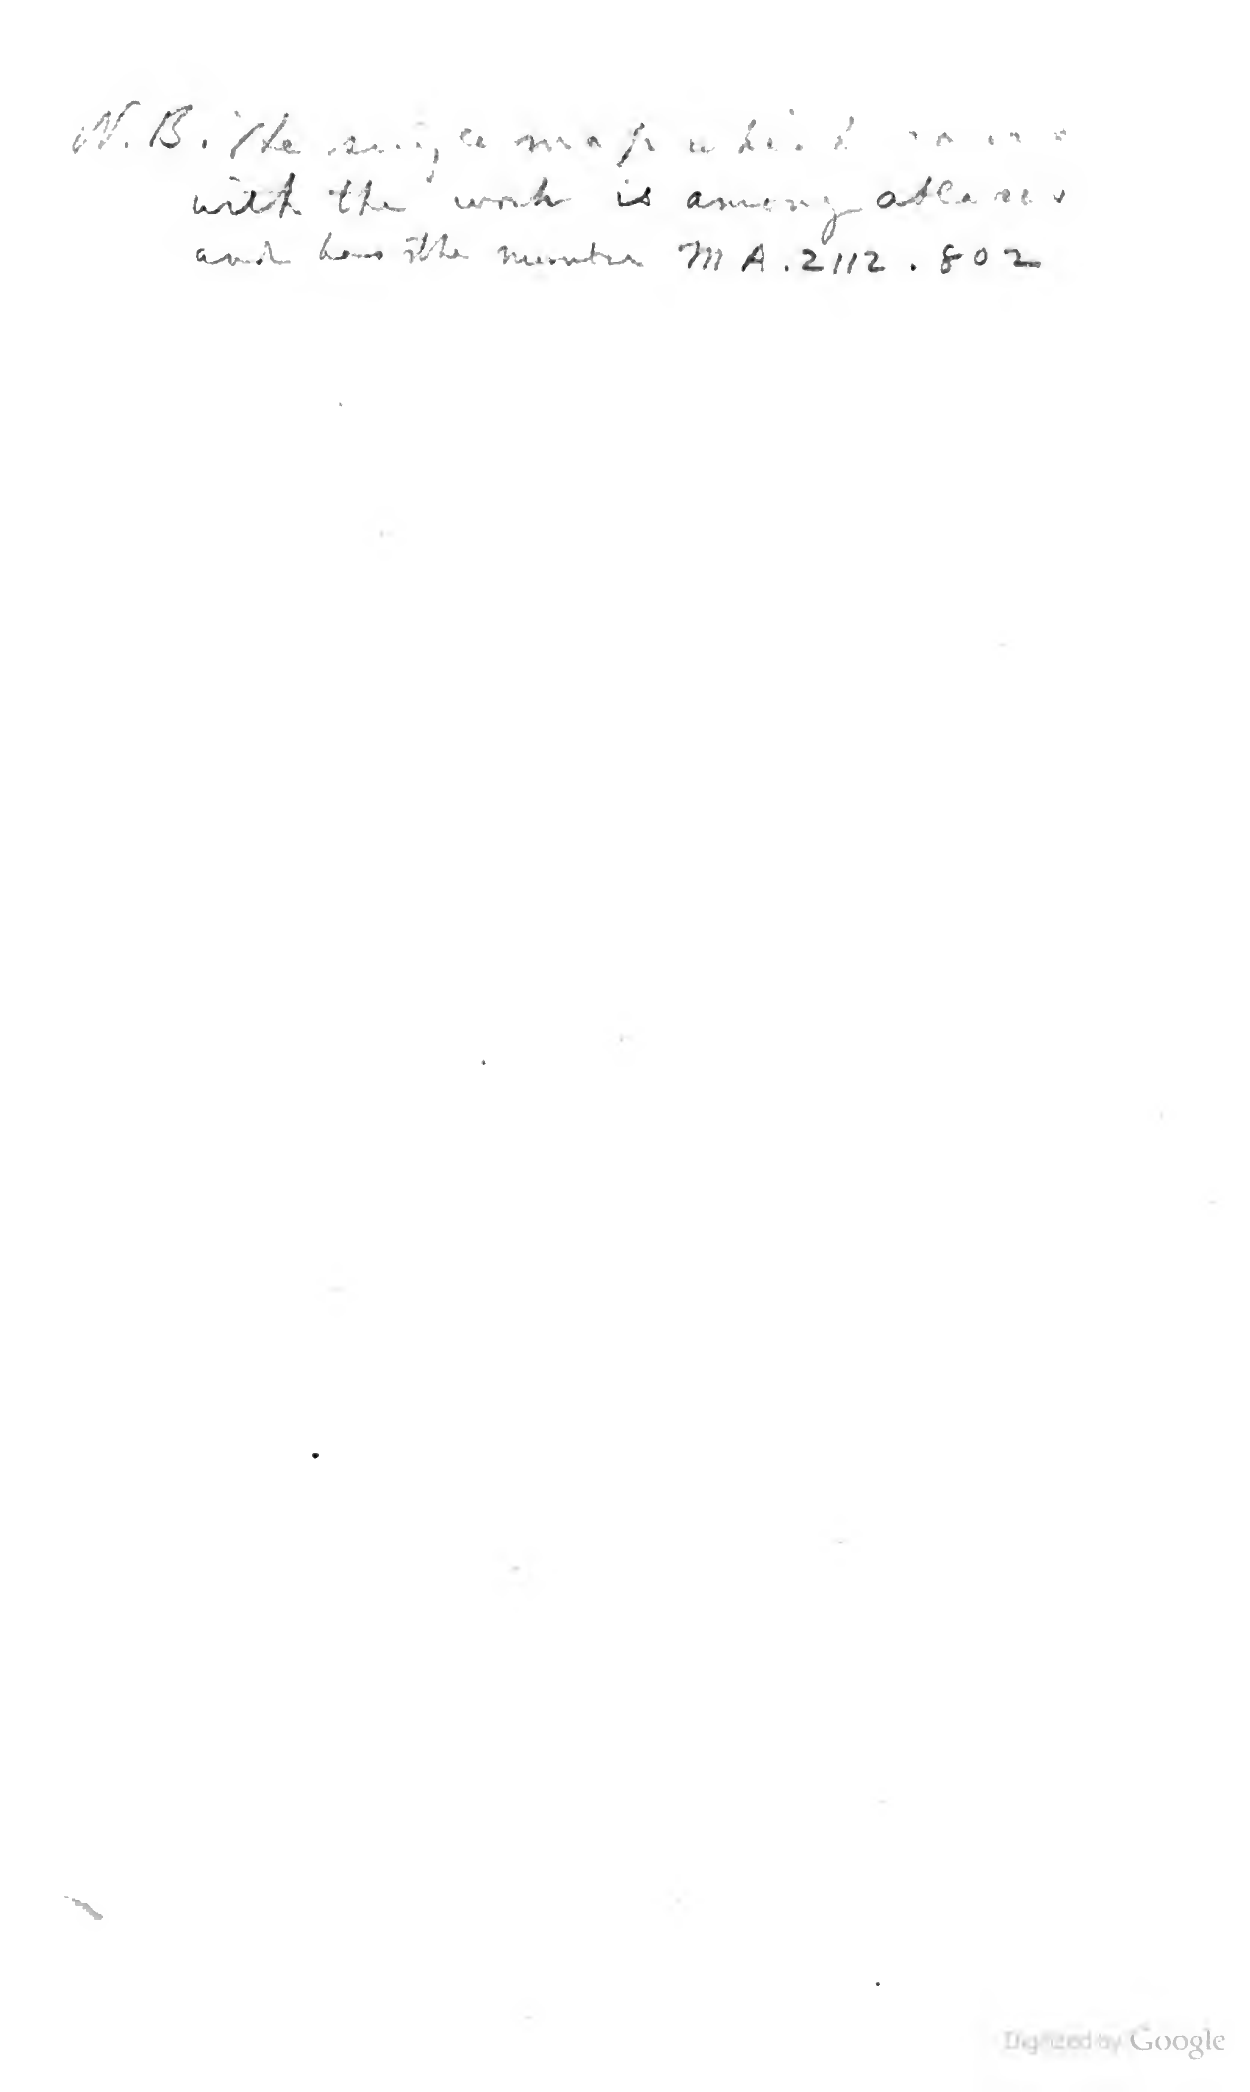 N.B. The single map which came
with the work is among atlases
and has the number MA.2112.802
Digitized by Google